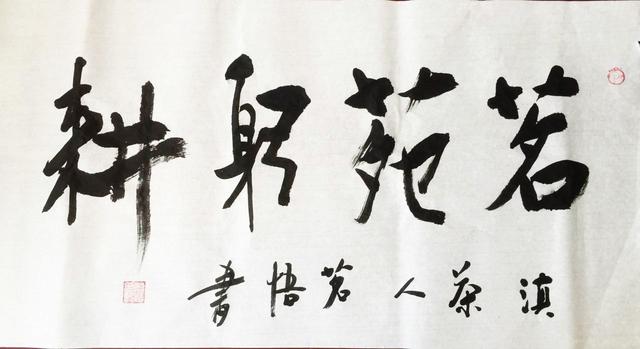 茗苑躬耕
滇茶人茗悟書